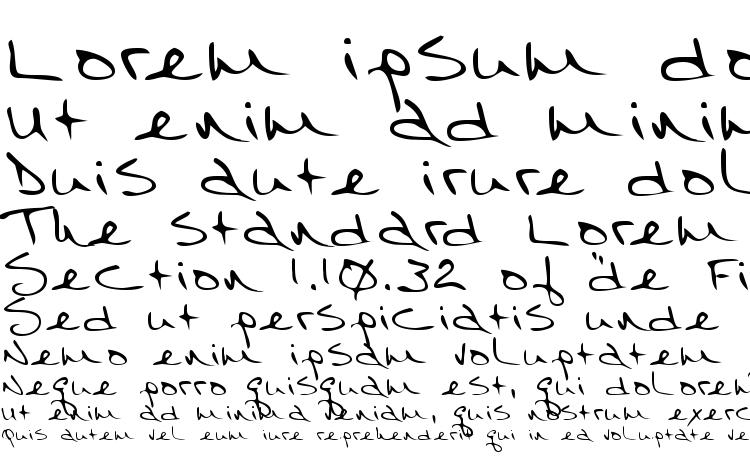 Lorem ipsum do
Ut enim ad minim
Duis aute irure dol
The standard Lorem
Section 1.10.32 of "de Fi
Sed ut perspiciatis unde
Nemo enim ipsam voluptatem
Neque porro quisquam est, qui dolorem
Ut enim ad minima veniam, quis nostrum exerc
Quis autem vel eum iure reprehenderit qui in ea voluptate ve